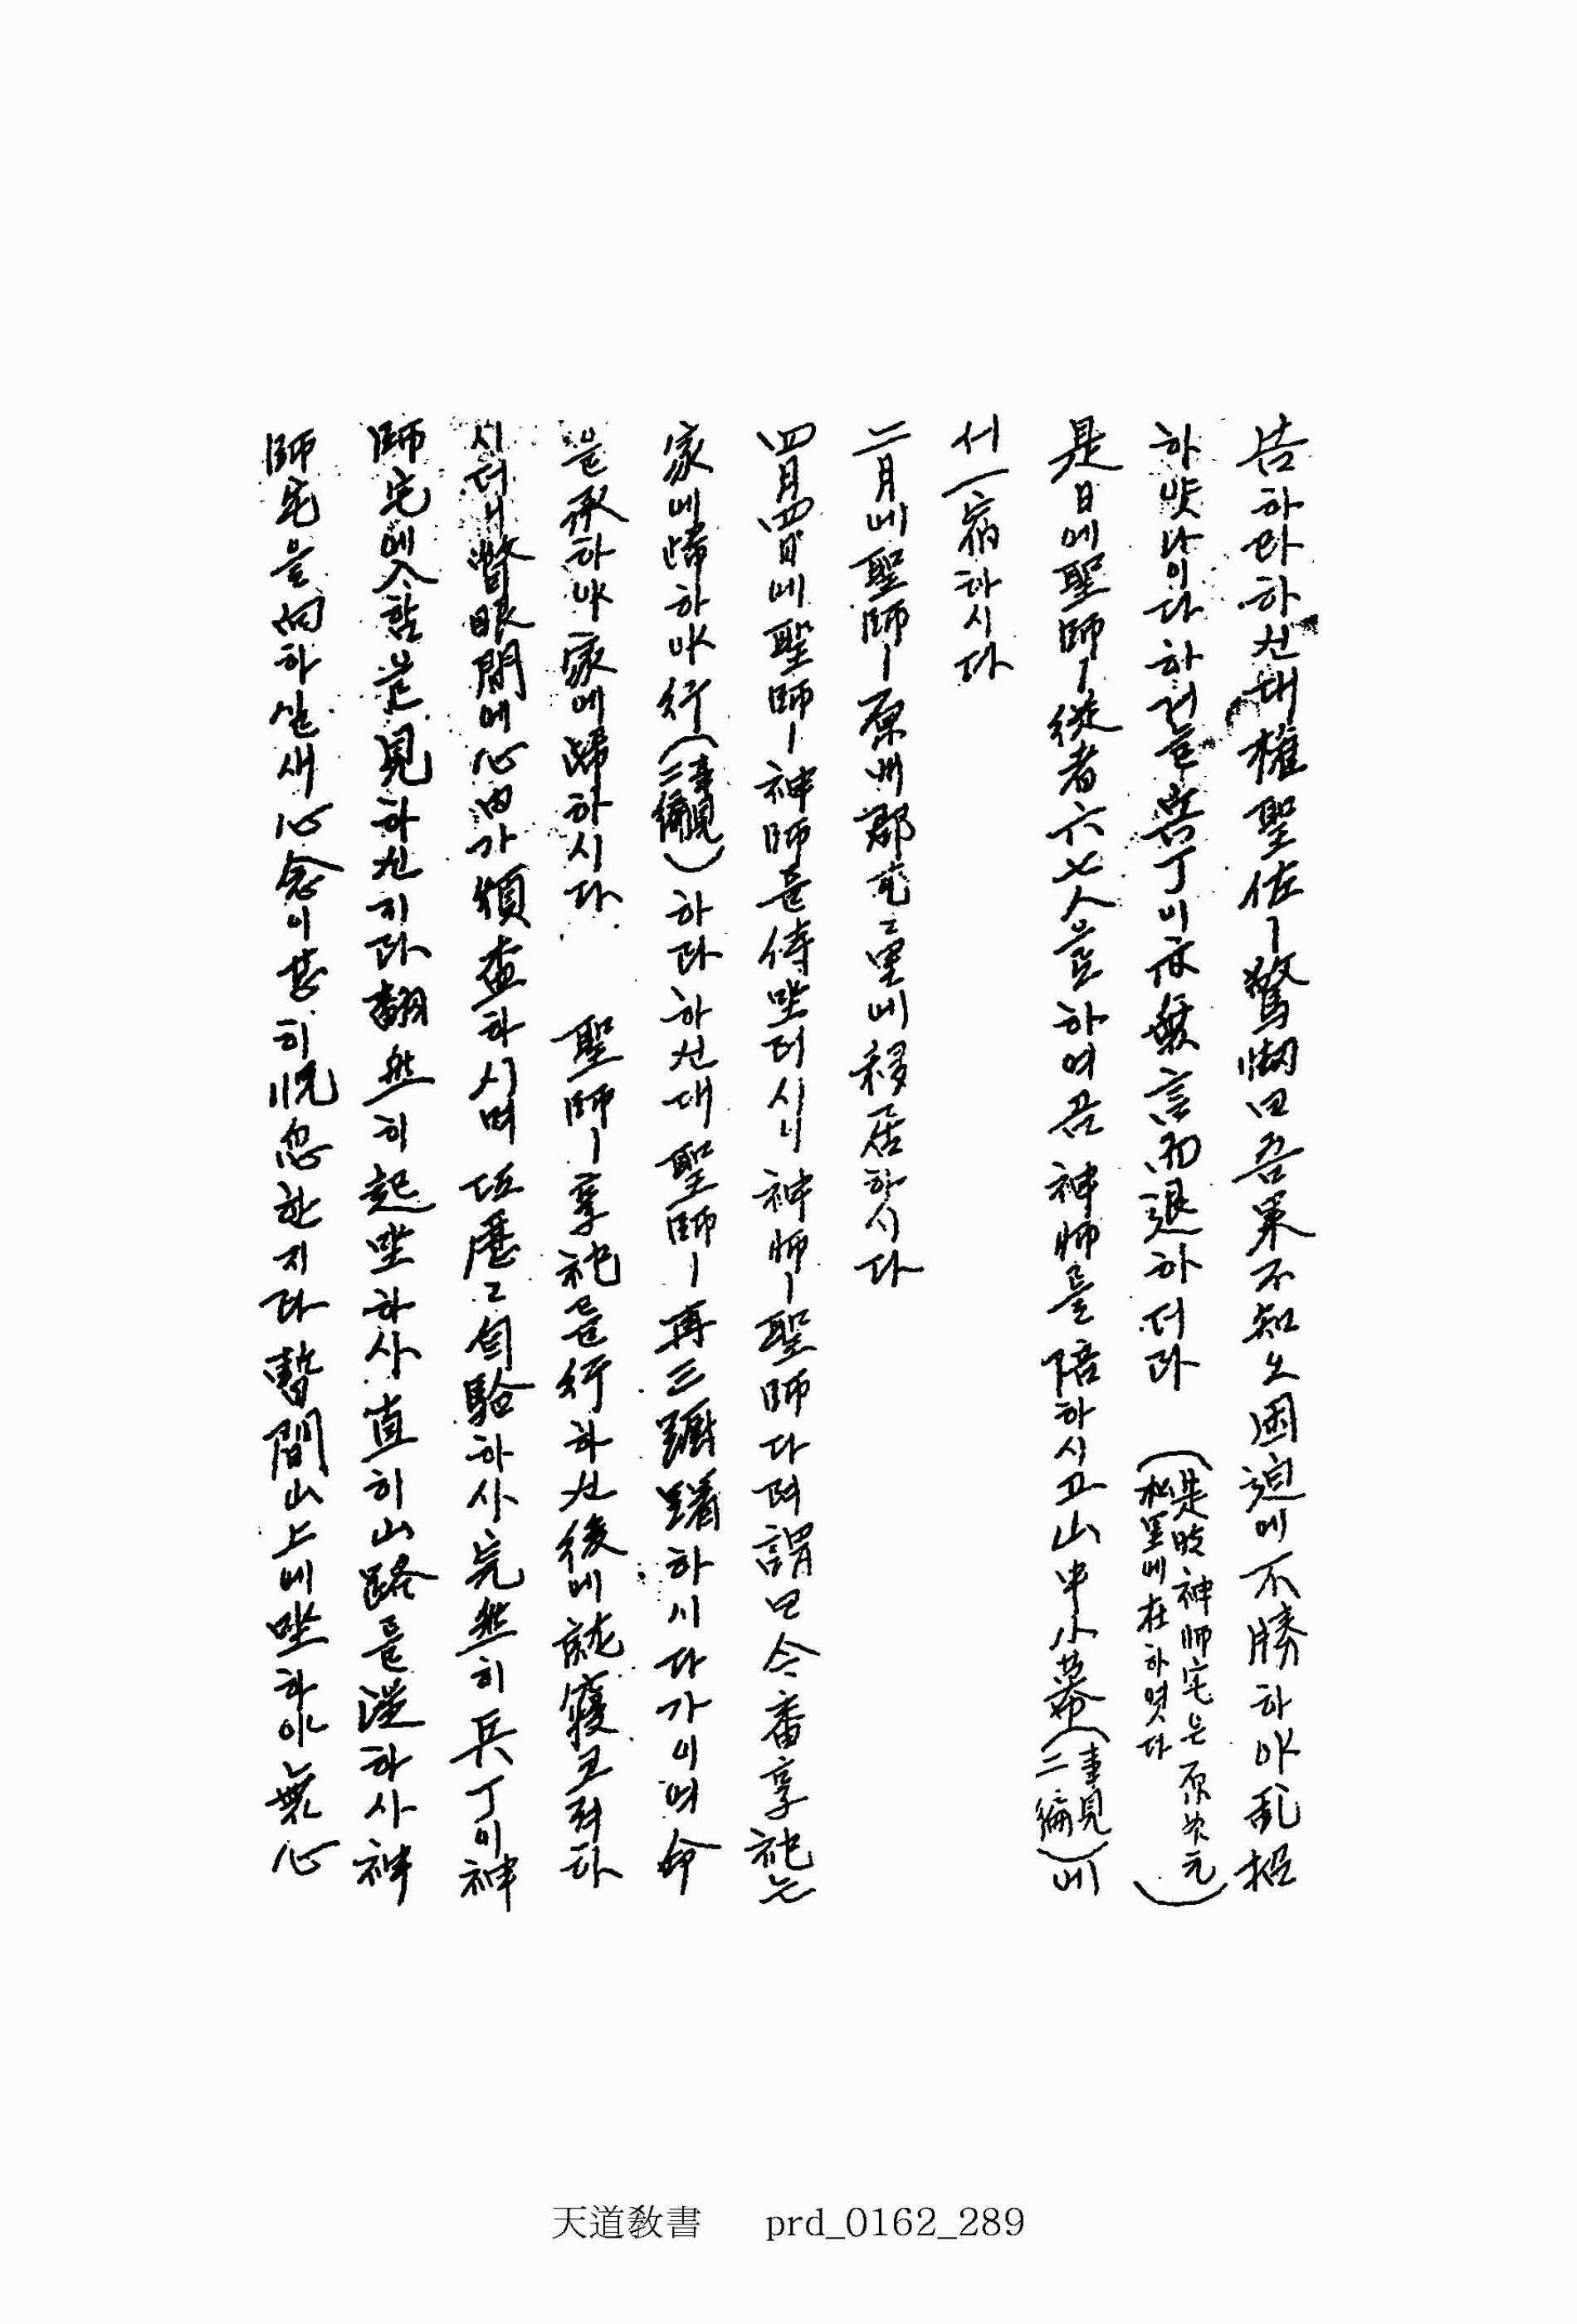 告하라하신대 權聖佐ㅣ驚懶曰吾果不知나困迫에不勝하야亂招
하얏나이다하거늘兵丁이亦無言而退하더라 (是時神師宅은原州元
松里에在하엿다)
是日에聖師ㅣ從者六七人으로하여금 神師를陪하시고山中小幕(事見
二編)에
서一宿하시다
二月에聖師ㅣ原州郡 里에移居하시다
四月四日에聖師ㅣ神師를侍坐터시니 神師ㅣ聖師다려謂曰今番享祀는
家에歸하야行(事見
二編)하라하신대聖師ㅣ再三躕躇하시다가이여命
을承하야家에歸하시다 聖師ㅣ享祀를行하신後에就寢코저하
시더니瞥眼間에心內가煩 하시며 歷々自 하사完然히兵丁이神
師宅에入함을見하신지라翻然히起坐하사直히山路를從하사神
師宅을向하실새心念이甚히恍忽한지라暫間山上에坐하야無心